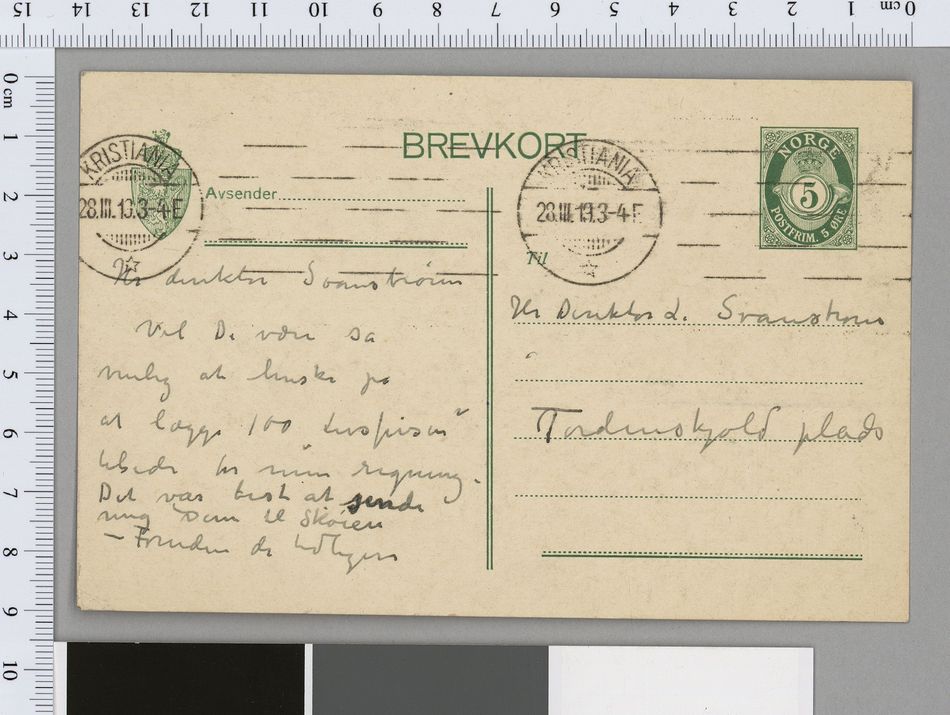 15 14 13 12 11 10 9 8 7 6 5 4 3 2 1 cm 0
0 cm
1
2
3
4
5
6
7
8
9
10
BREVKORT
KRISTIANIA
28.III.19.3-4E
KRISTIANIA
28.III.19.3-4E
NORGE
5
POSTFRIM. 5 ØRE
Avsender
Til
Hr direktør Svanstrøm
Vil De være så
venlig at huske på
at lægge 100
tilside for min regning.
Det var best at sende
mig dem til Skøien
– Foruden de
Hr Direktør L. Svanstrøm
Tordenskjold plads